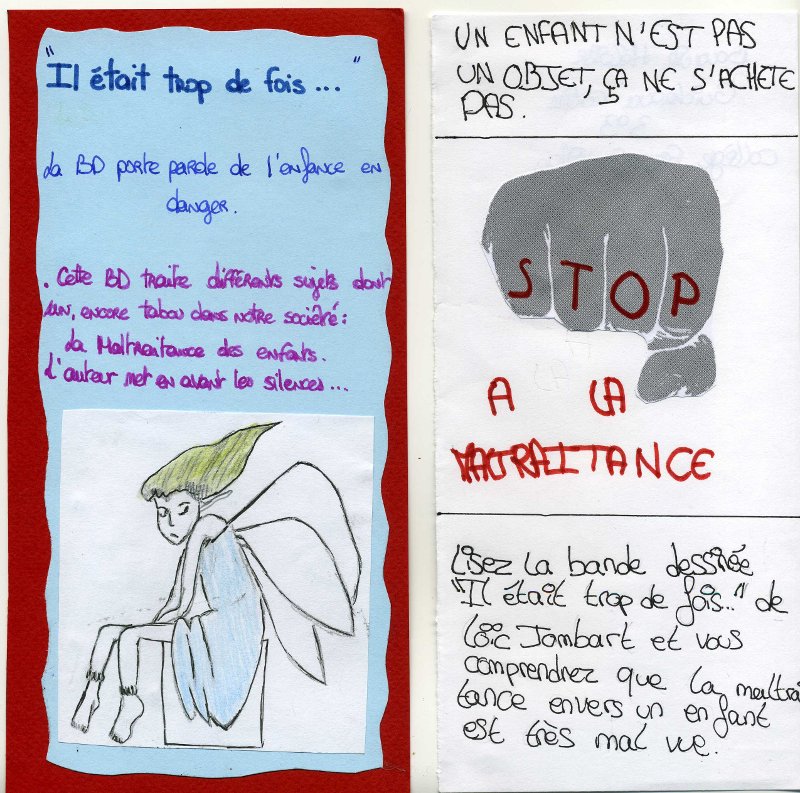 "Il était trop de fois..."
La BD porte parole de l'enfance en
danger.
. Cette BD traite différents sujets dont
un, encore tabou dans notre société:
La Maltraitance des enfants.
L'auteur met en avant les silences...
UN ENFANT N'EST PAS
UN OBJET, ÇA NE S'ACHÈTE
PAS.
STOP
A LA
MALTRAITANCE
Lisez la bande dessinée
"Il était trop de fois..." de
Loïc Jombart et vous
comprendrez que la maltrai
tance envers un enfant
est très mal vue.